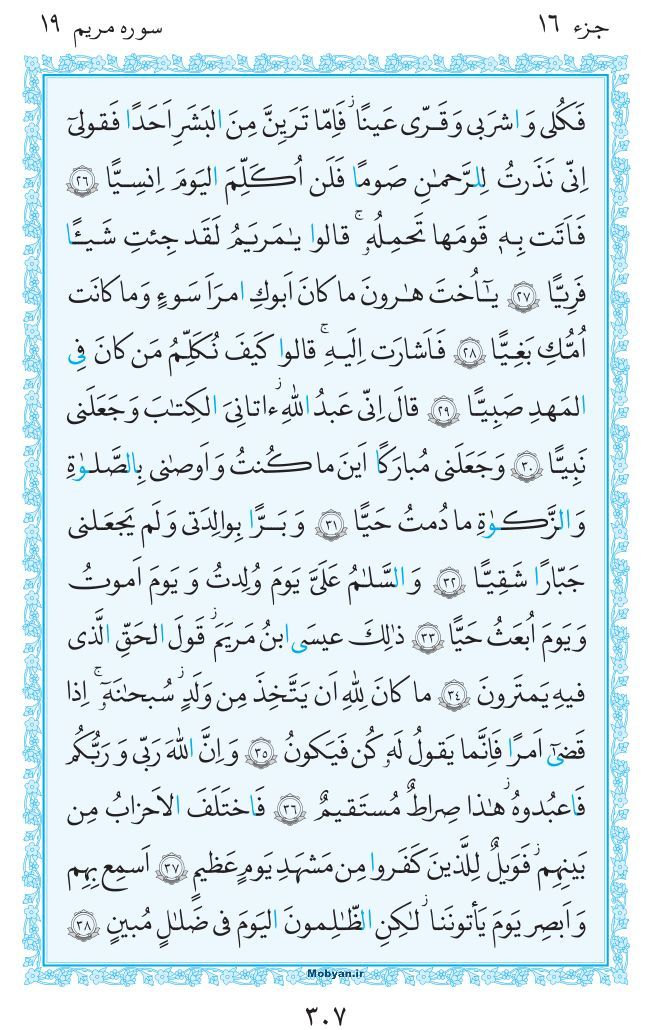 جزء ۱۶
سوره مریم ۱۹
فَكُلى وَاشرَبى وَقَرّى عَينًا ۖ فَاِمّا تَرَيِنَّ مِنَ البَشَرِ اَحَدًا فَقولىٓ
اِنّى نَذَرتُ لِلرَّحمٰنِ صَومًا فَلَن اُكَلِّمَ اليَومَ اِنسِيًّا ﴿۲۶﴾
فَاَتَت بِهٖ قَومَها تَحمِلُهٗ ۚ قالوا يٰمَريَمُ لَقَد جِئتِ شَيـًٔا
فَرِيًّا ﴿۲۷﴾ يٰٓاُختَ هٰرونَ ما كانَ اَبوكِ امرَاَ سَوءٍ وَما كانَت
اُمُّكِ بَغِيًّا ﴿۲۸﴾ فَاَشارَت اِلَيهِ ۚ قالوا كَيفَ نُكَلِّمُ مَن كانَ فِى
المَهدِ صَبِيًّا ﴿۲۹﴾ قالَ اِنّى عَبدُ اللّٰهِ ۖ ءاتانِىَ الكِتٰبَ وَجَعَلَنى
نَبِيًّا ﴿۳۰﴾ وَجَعَلَنى مُبارَكًا اَينَ ما كُنتُ وَاَوصٰنى بِالصَّلوٰةِ
وَالزَّكوٰةِ ما دُمتُ حَيًّا ﴿۳۱﴾ وَبَرًّا بِوالِدَتى وَلَم يَجعَلنى
جَبّارًا شَقِيًّا ﴿۳۲﴾ وَالسَّلٰمُ عَلَىَّ يَومَ وُلِدتُ وَيَومَ اَموتُ
وَيَومَ اُبعَثُ حَيًّا ﴿۳۳﴾ ذٰلِكَ عيسَى ابنُ مَريَمَ ۖ قَولَ الحَقِّ الَّذى
فيهِ يَمتَرونَ ﴿۳۴﴾ ما كانَ لِلّٰهِ اَن يَتَّخِذَ مِن وَلَدٍ ۖ سُبحٰنَهٗٓ ۚ اِذا
قَضىٰٓ اَمرًا فَاِنَّما يَقولُ لَهٗ كُن فَيَكونُ ﴿۳۵﴾ وَاِنَّ اللّٰهَ رَبّى وَرَبُّكُم
فَاعبُدوهُ ۚ هٰذا صِراطٌ مُستَقيمٌ ﴿۳۶﴾ فَاختَلَفَ الاَحزابُ مِن
بَينِهِم ۖ فَوَيلٌ لِلَّذينَ كَفَروا مِن مَشهَدِ يَومٍ عَظيمٍ ﴿۳۷﴾ اَسمِع بِهِم
وَاَبصِر يَومَ يَأتونَنا ۖ لٰكِنِ الظّٰلِمونَ اليَومَ فى ضَلٰلٍ مُبينٍ ﴿۳۸﴾
Mobyan.ir
۳۰۷